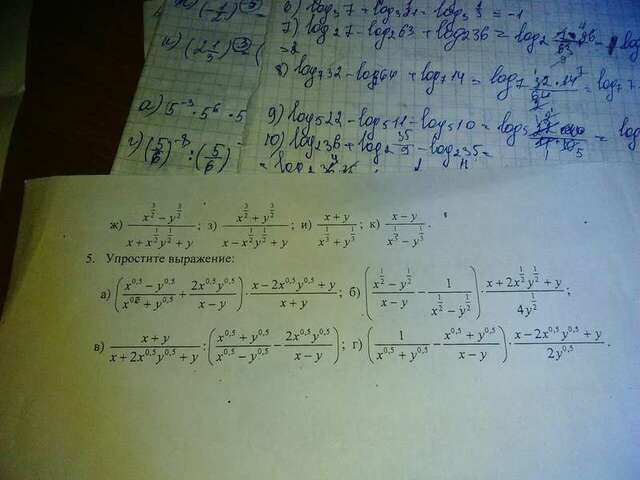 6) log₃7 + log₃21 - log₃3 = -1
7) log₂7 - log₂63 + log₂36 = log₂
= 2
8) log₇32 - log₇64 + log₇14 = log₇ (32·14)/64 = log₇7
а) 5⁻³ · 5⁶ · 5
г) (5/6)⁻⁸ : (5/6)
9) log₅22 - log₅11 - log₅10 = log₅
10) log₂36 + log₂ 35/9 - log₂35 =
ж) (x^(3/2) − y^(3/2))/(x + x^(1/2)y^(1/2) + y); з) (x^(3/2) + y^(3/2))/(x − x^(1/2)y^(1/2) + y); и) (x + y)/(x^(1/3) + y^(1/3)); к) (x − y)/(x^(1/3) − y^(1/3)).
5. Упростите выражение:
а) ((x^0,5 − y^0,5)/(x^0,5 + y^0,5) + 2x^0,5y^0,5/(x − y)) · (x − 2x^0,5y^0,5 + y)/(x + y); б) ((x^(1/2) − y^(1/2))/(x − y) − 1/(x^(1/2) − y^(1/2))) · (x + 2x^(1/2)y^(1/2) + y)/(4y^(1/2));
в) (x + y)/(x + 2x^0,5y^0,5 + y) : ((x^0,5 + y^0,5)/(x^0,5 − y^0,5) − 2x^0,5y^0,5/(x − y)); г) (1/(x^0,5 + y^0,5) − (x^0,5 + y^0,5)/(x − y)) · (x − 2x^0,5y^0,5 + y)/(2y^0,5).